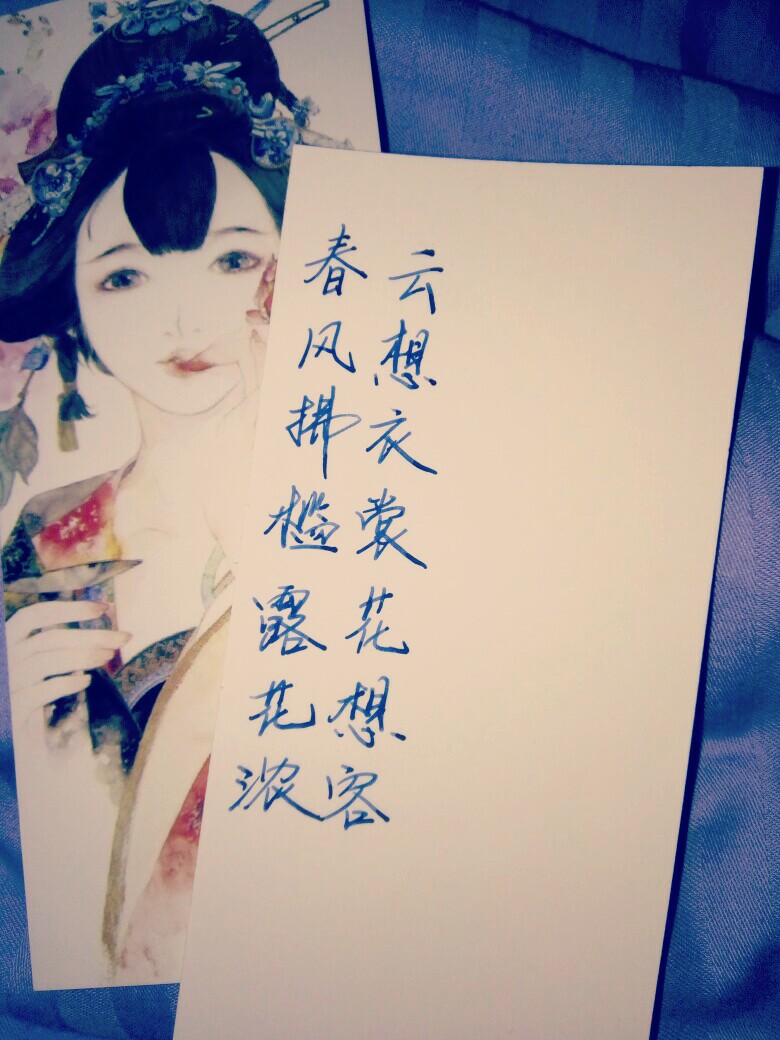 云想衣裳花想容
春风拂槛露花浓